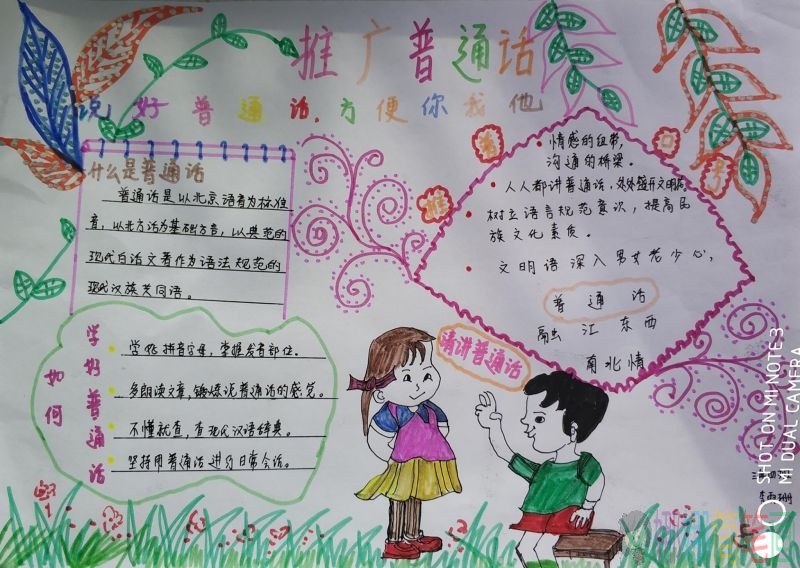 推广普通话
说好普通话,方便你我他
什么是普通话
普通话是以北京语音为标准
音,以北方话为基础方言,以典范的
现代白话文著作为语法规范的
现代汉族共同语。
如何
学好普通话
学好拼音字母,掌握发音部位。
多朗读文章,锻炼说普通话的感觉。
不懂就查,查现代汉语辞典。
坚持用普通话进行日常会话。
推普口号
情感的纽带,
沟通的桥梁。
人人都讲普通话,处处盛开文明花
树立语言规范意识,提高民
族文化素质。
文明语深入男女老少心,
普通话
融江东西
南北情
请讲普通话
SHOT ON MI NOTE 3
MI DUAL CAMERA